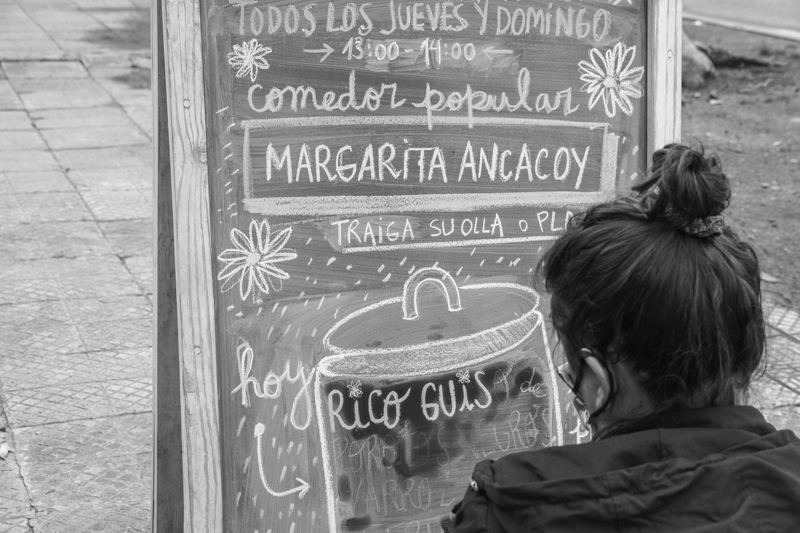 TODOS LOS JUEVES Y DOMINGO
13:00 - 14:00
comedor popular
MARGARITA ANCACOY
TRAIGA SU OLLA o PLA
hoy
RICO GUIS
de
POROTOS
ARRO